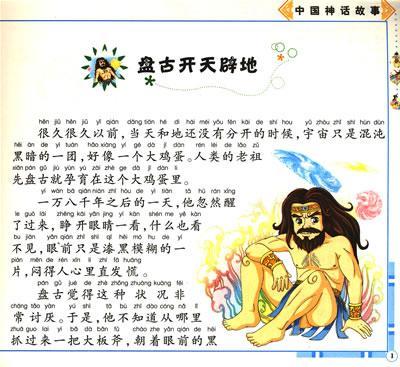 中国神话故事
盘古开天辟地
hěn jiǔ hěn jiǔ yǐ qián dāng tiān hé dì hái méi yǒu fēn kāi de shí hou yǔ zhòu zhǐ shì hùn dùn
很久很久以前，当天和地还没有分开的时候，宇宙只是混沌
hēi àn de yì tuán hǎo xiàng yí gè dà jī dàn rén lèi de lǎo zǔ
黑暗的一团，好像一个大鸡蛋。人类的老祖
xiān pán gǔ jiù yùn yù zài zhè ge dà jī dàn lǐ
先盘古就孕育在这个大鸡蛋里。
yí wàn bā qiān nián zhī hòu de yì tiān tā hū rán xǐng
一万八千年之后的一天，他忽然醒
le guò lái zhēng kāi yǎn jing yí kàn shén me yě kàn
了过来，睁开眼睛一看，什么也看
bu jiàn yǎn qián zhǐ shì qī hēi mó hu de yí
不见，眼前只是漆黑模糊的一
piàn mēn de rén xīn li zhí fā huāng
片，闷得人心里直发慌。
pán gǔ jué de zhè zhǒng zhuàng kuàng fēi
盘古觉得这种状况非
cháng tǎo yàn yú shì tā bù zhī dào cóng nǎ lǐ
常讨厌。于是，他不知道从哪里
zhuā guo lai yì bǎ dà bǎn fǔ cháo zhe yǎn qián de hēi
抓过来一把大板斧，朝着眼前的黑
1